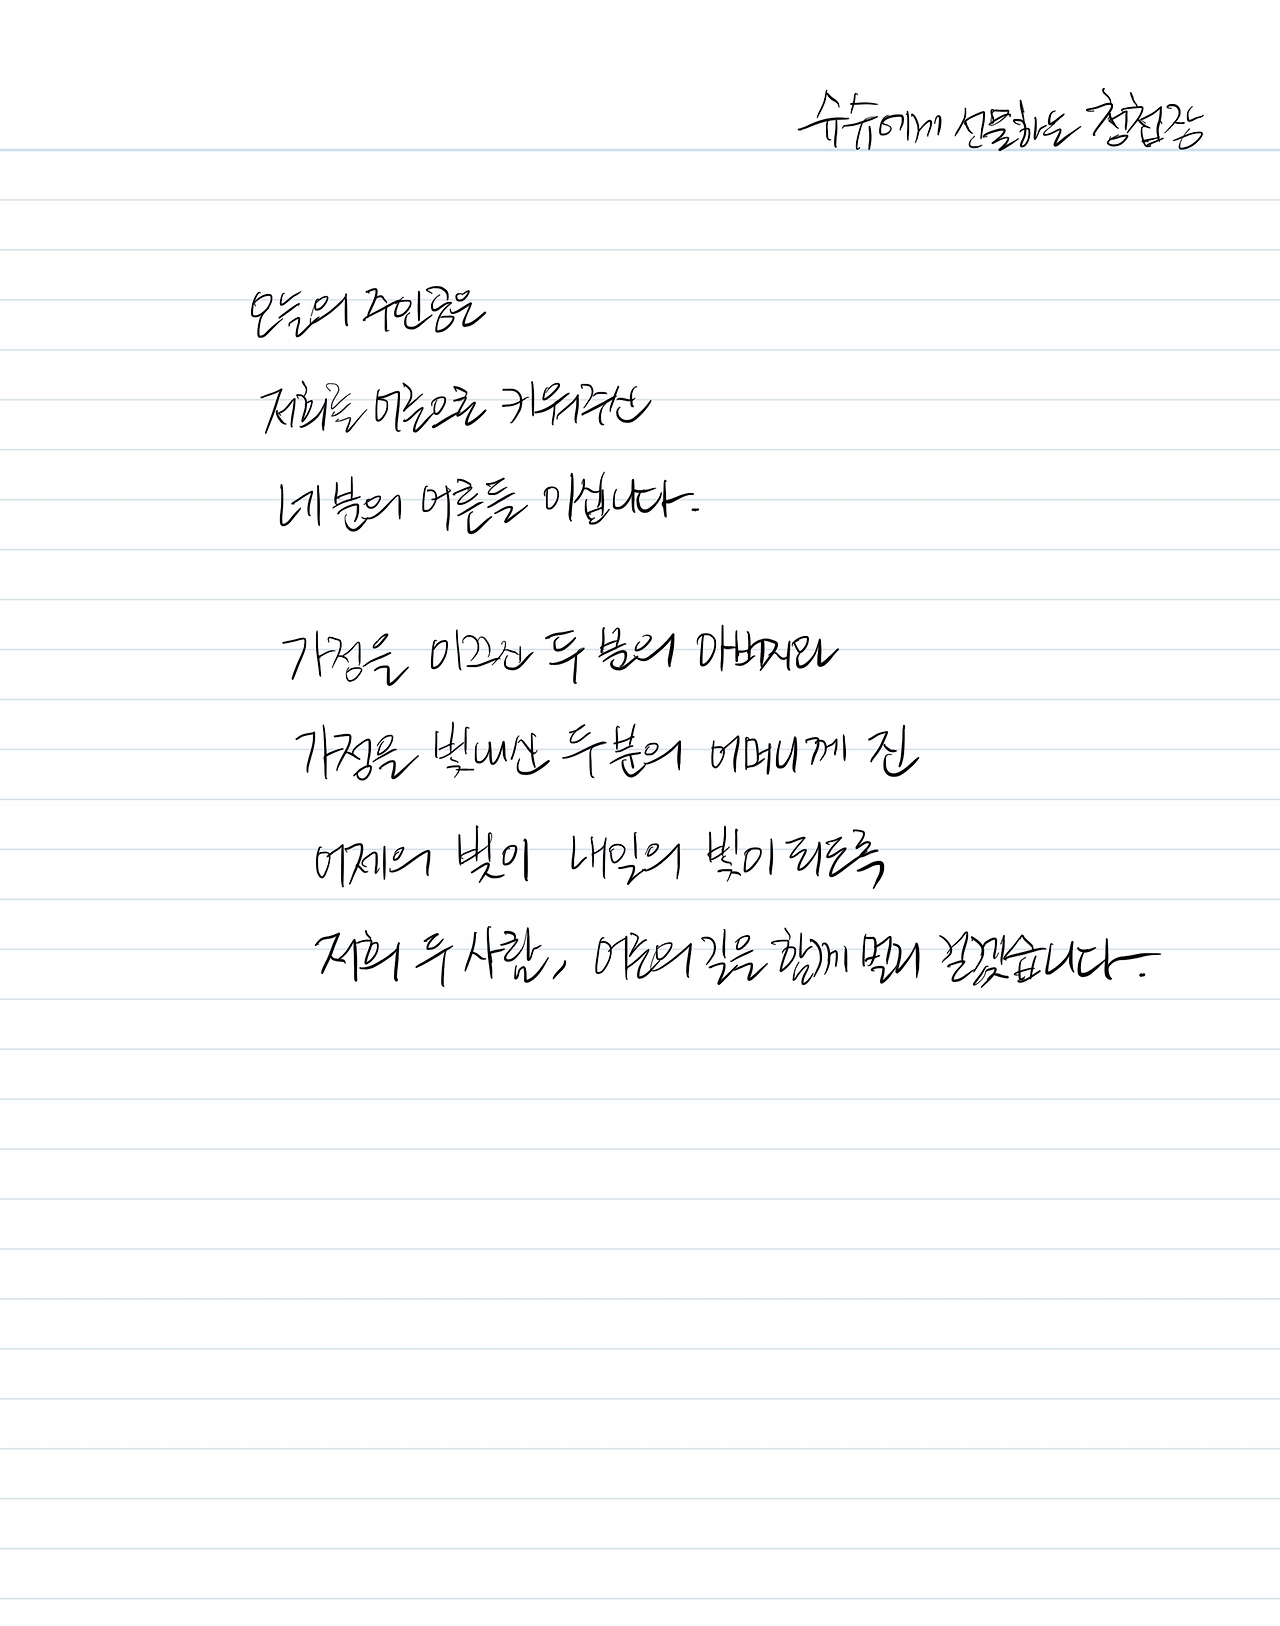 슈슈에게 선물하는 청첩장
오늘의 주인공은
저희를 어른으로 키워주신
네 분의 어른들 이십니다.
가정을 이끄신 두 분의 아버지와
가정을 빛내신 두 분의 어머니께 진
어제의 빚이 내일의 빛이 되도록
저희 두 사람, 어른의 길을 함께 멀리 걷겠습니다.